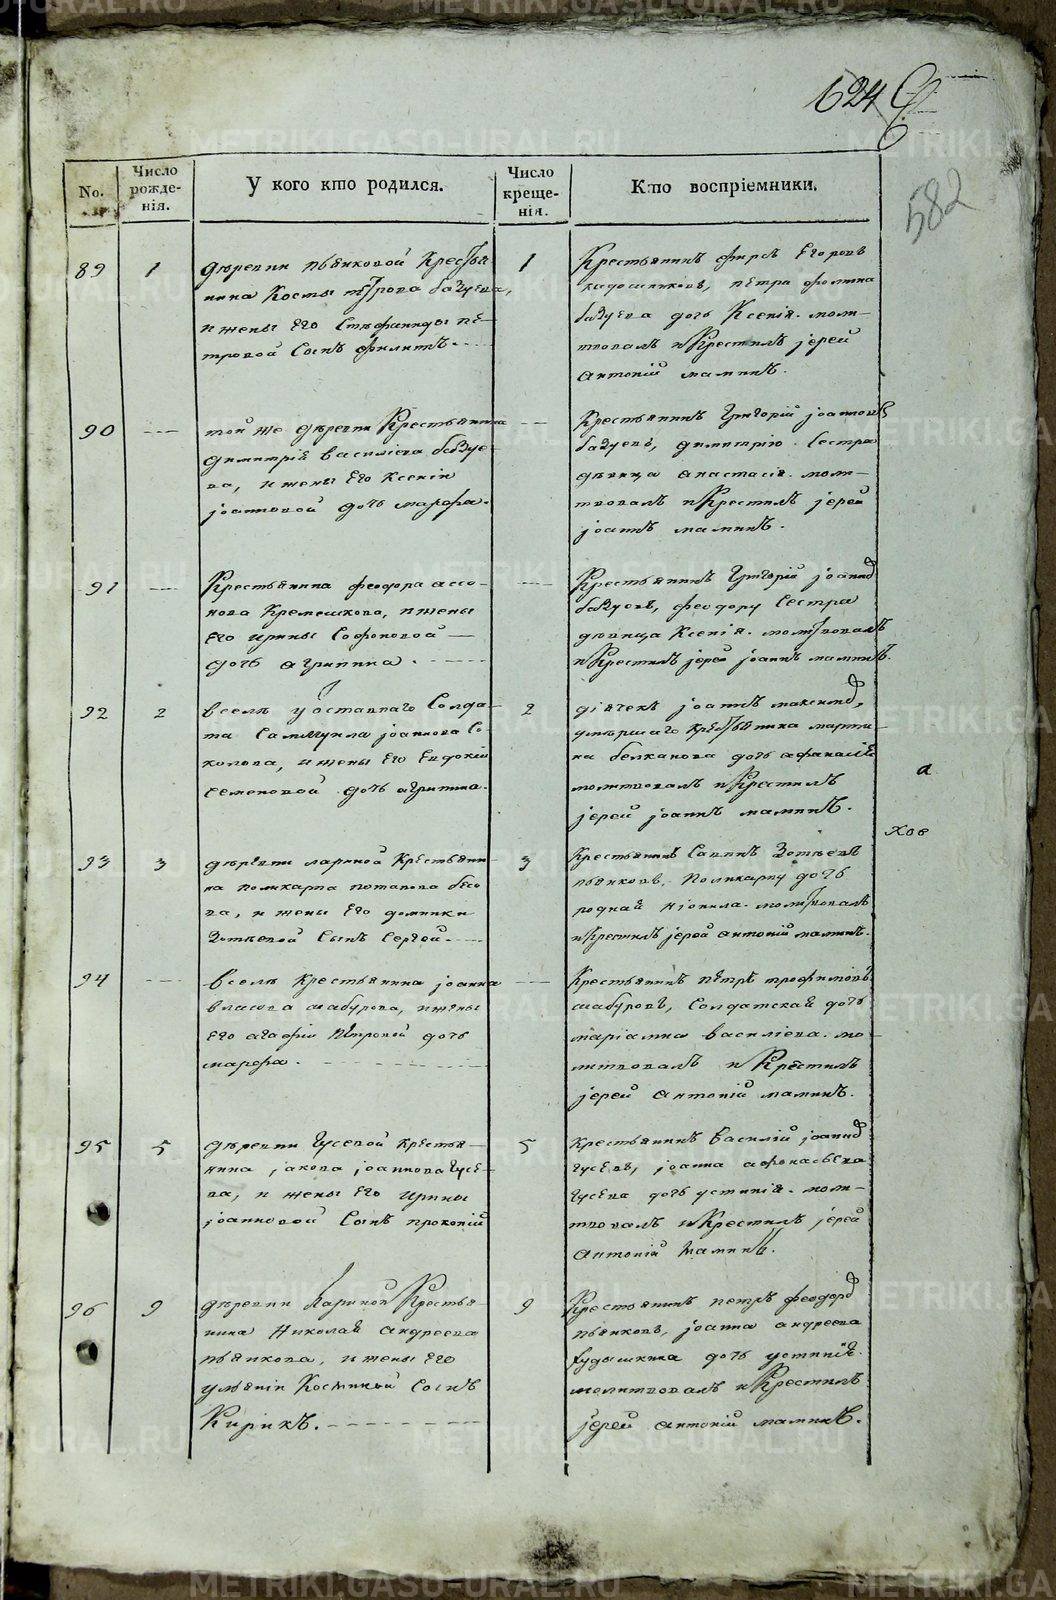 624
582
No.
Число рожде-нія.
У кого кто родился.
Число креще-нія.
Кто воспріемники.
89
1
деревни пьянковой Кресть-
нина Косты петрова базуева,
и жены Его Стефаниды пе-
тровой Сынъ филипъ.
1
Крестьянинъ фирсъ Егоровъ
петра фомина
базуева дочь Ксенія. моли-
твовалъ и Крестилъ јерей
Антоній маминъ.
90
той же деревни Крестьянина
Димитрія василіева базуе-
ва, и жены Его Ксеніи
јоанновой дочь марфа.
Крестьянинъ Григорій јоанновъ
базуевъ, димитрію Сестра
девица Анастасія. моли-
твовалъ и Крестилъ јерей
јоаннъ маминъ.
91
Крестьянина феодора ассо-
нова Кремешкова, и жены
Его ирины Софоновой
дочь агрипина.
Крестьянинъ Григорій јоаннов
базуевъ, феодору Сестра
девица Ксенія. молитвовалъ
и Крестилъ јерей јоаннъ маминъ.
92
2
в селе у оставнаго Солда-
та Самуила јоаннова Со-
колова, и жены Его Евдокіи
Семеновой дочь агрипина.
2
дьячекъ јоаннъ максимов,
умершаго крестьянина марти-
на белканова дочь афанасія
молитвовалъ и Крестилъ
јерей јоаннъ маминъ.
а
хое
93
3
деревни лариной Крестьяни-
на поликарпа потапова бесо-
ва, и жены Его домники
Зотѣевой Сынъ Сергей.
3
Крестьянинъ Саввинъ Зотѣевъ
пьянковъ, поликарпу дочь
родная Ніонила. молитвовалъ
и Крестилъ јерей антоній маминъ.
94
в селе крестьянина јоанна
власова шабурова, и жены
Его агафіи петровой дочь
марфа.
Крестьянинъ петръ трофимовъ
шабуровъ, Солдатская дочь
маріамна василіева. мо-
литвовалъ и Крестилъ
јерей антоній маминъ.
95
5
деревни Гусевой крестья-
нина јакова јоаннова Гусе-
ва, и жены Его ирины
јоанновой Сынъ прокопій
5
Крестьянинъ василій јоаннов
Гусевъ, јоанна афонасьева
Гусева дочь устинія. моли-
твовалъ и Крестилъ јерей
антоній маминъ.
96
9
деревни лариной Крестья-
нина Николая андреева
пьянкова, и жены Его
уліяніи Костиной Сынъ
Кирикъ.
9
Крестьянинъ петръ феодоров
пьянковъ, јоанна андреева
Кудышкина дочь устинія.
молитвовалъ и Крестилъ
јерей антоній маминъ.
METRIKI.GASO-URAL.RU